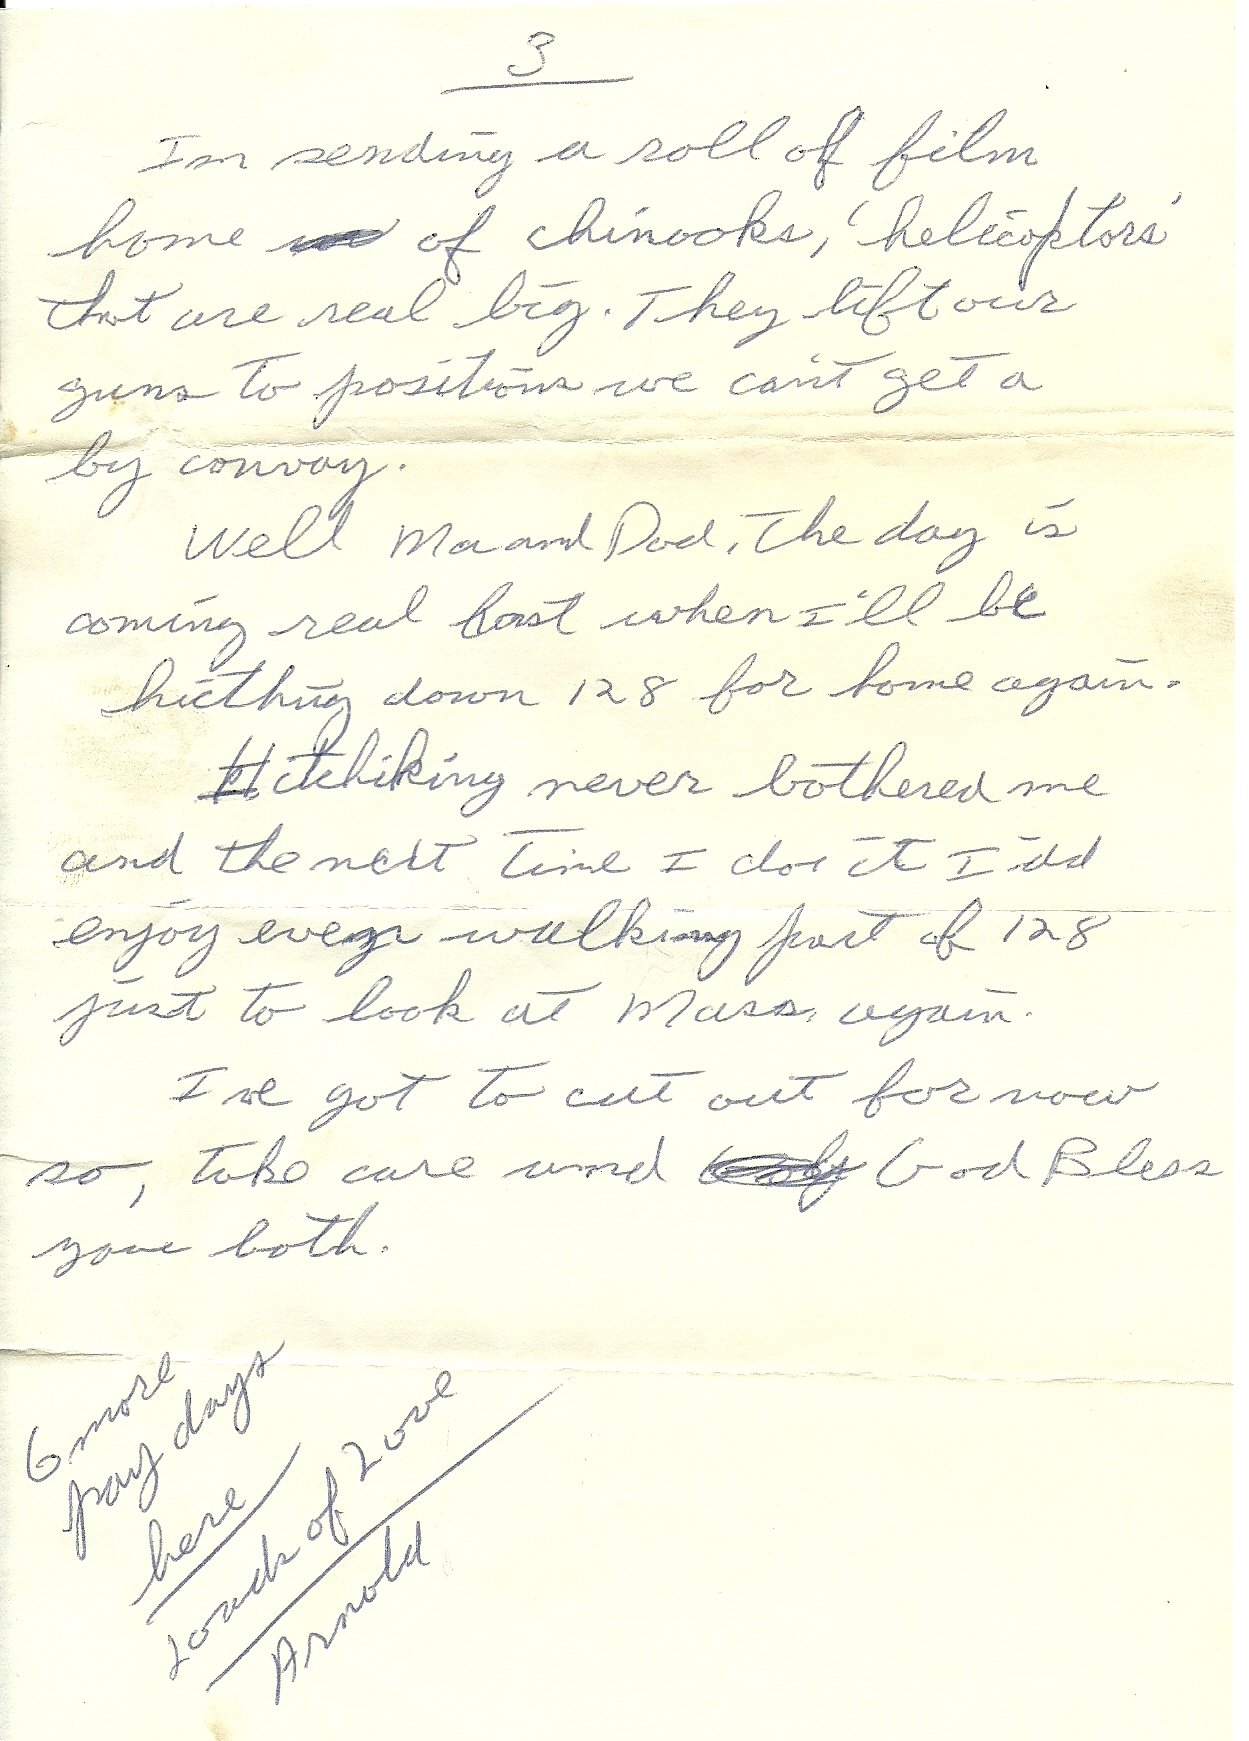 3
Im sending a roll of film
home of chinooks, 'helicoptors'
that are real big. They lift our
guns to positions we can't get a
by convoy.
Well Ma and Dad, The day is
coming real fast when I'll be
hicthing down 128 for home again.
Hitchiking never bothered me
and the next time I do it I'dd
enjoy even walking part of 128
just to look at Mass. again.
I've got to cut out for now
so, take care and God Bless
you both.
6 more
pay days
here
Loads of Love
Arnold